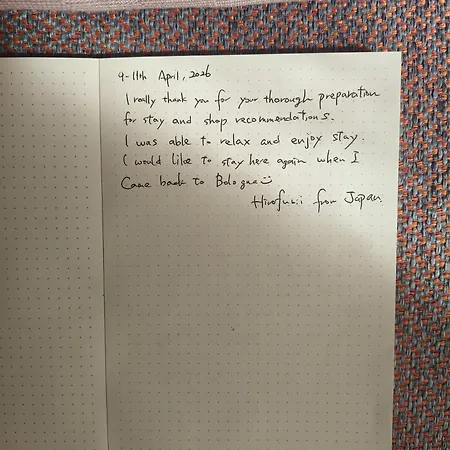 9-11th April, 2026
I really thank you for your thorough preparation
for stay and shop recommendations.
I was able to relax and enjoy stay.
I would like to stay here again when I
Came back to Bologna☺
Hirofumi from Japan.